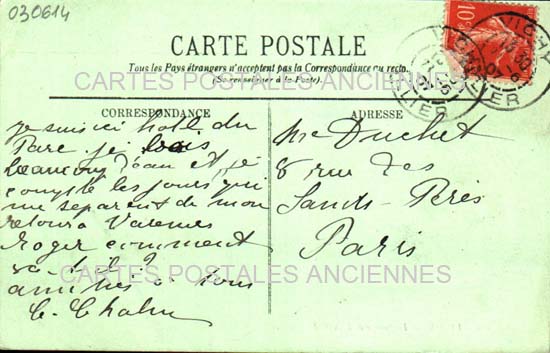 030614
CARTE POSTALE
Tous les Pays étrangers n'acceptent pas la Correspondance au recto.
(Se renseigner à la Poste).
CARTES POSTALES ANCIENNES
CORRESPONDANCE
je suis ici hôtel du
Parc je bois
beaucoup d'eau et je
compte les jours qui
me séparent de mon
retour à Varennes
Roger comment
va-t-il?
amitiés à tous
C.
ADRESSE
Me Duchet
8 rue des
Saints-Pères
Paris
CARTES POSTALES ANCIENNES
10
VICHY
ALLIER